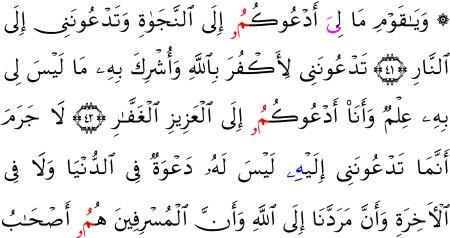 ۞ وَيَـٰقَوْمِ مَا لِىَ أَدْعُوكُمُۥ إِلَى ٱلنَّجَوٰةِ وَتَدْعُونَنِى إِلَى
ٱلنَّارِ ﴿٤١﴾ تَدْعُونَنِى لِأَكْفُرَ بِٱللَّهِ وَأُشْرِكَ بِهِۦ مَا لَيْسَ لِى
بِهِۦ عِلْمٌ وَأَنَا۠ أَدْعُوكُمُۥ إِلَى ٱلْعَزِيزِ ٱلْغَفَّـٰرِ ﴿٤٢﴾ لَا جَرَمَ
أَنَّمَا تَدْعُونَنِى إِلَيْهِۦ لَيْسَ لَهُۥ دَعْوَةٌ فِى ٱلدُّنْيَا وَلَا فِى
ٱلْـَٔاخِرَةِ وَأَنَّ مَرَدَّنَا إِلَى ٱللَّهِ وَأَنَّ ٱلْمُسْرِفِينَ هُمُۥ أَصْحَـٰبُ